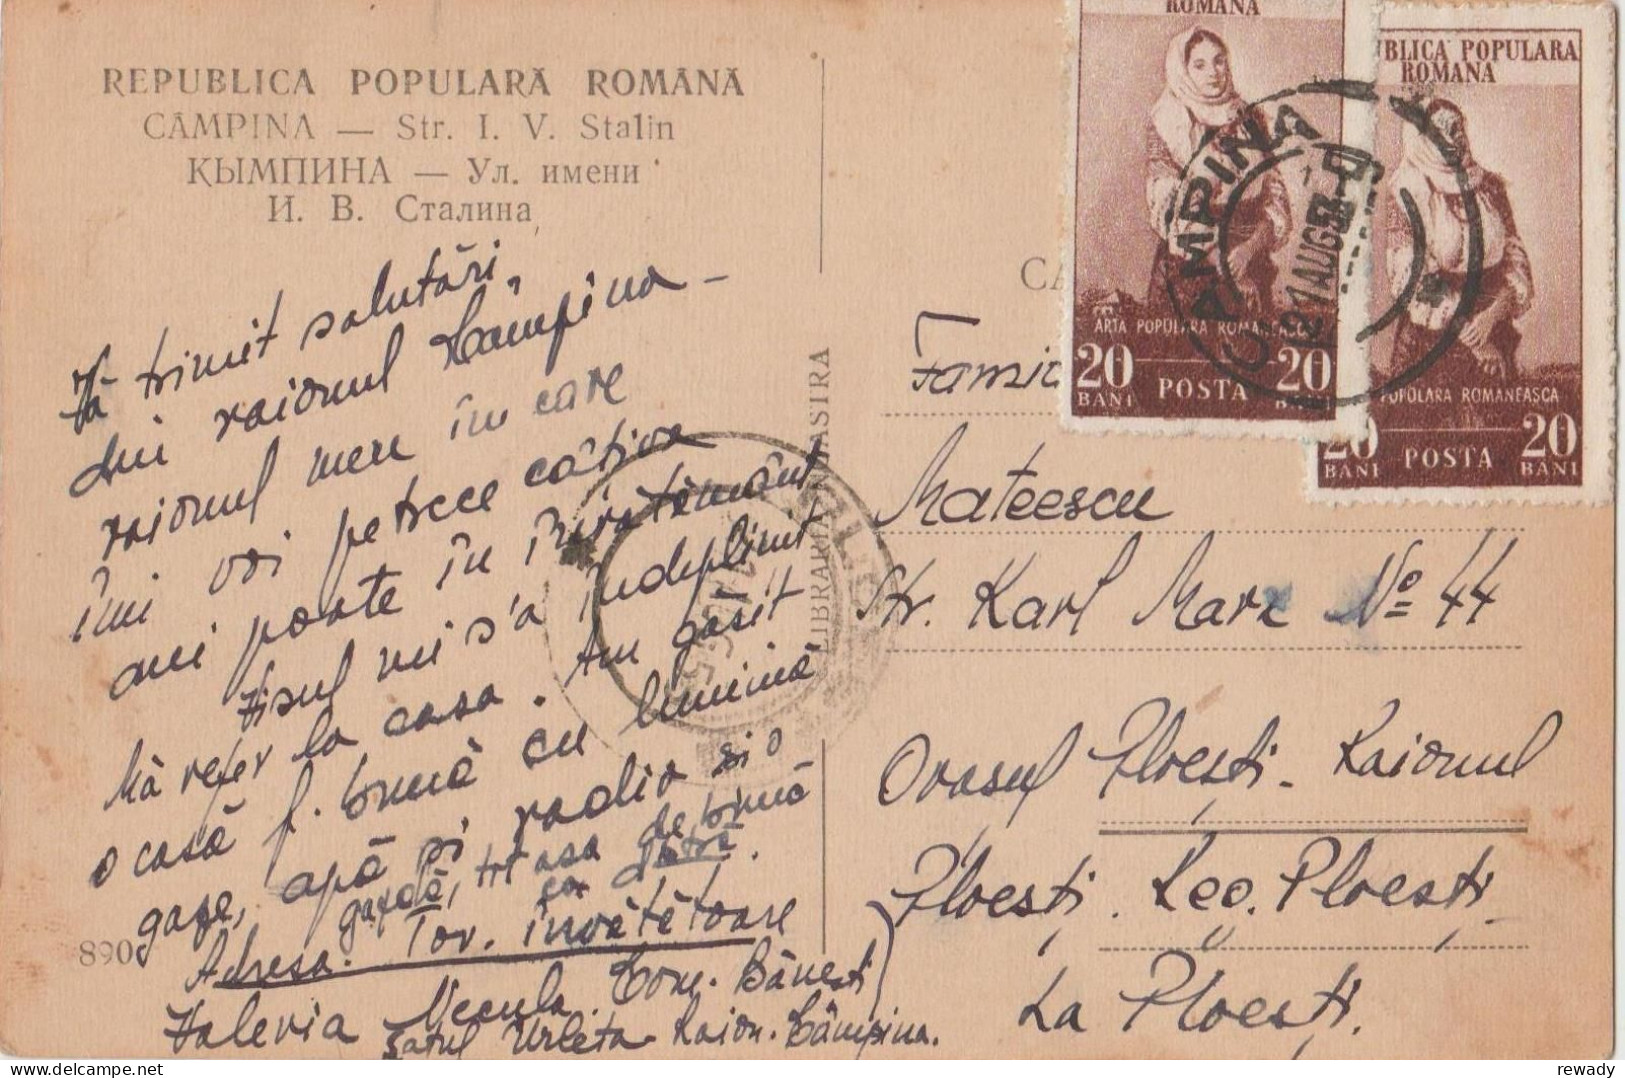 REPUBLICA POPULARĂ ROMÂNĂ
CÂMPINA — Str. I. V. Stalin
КЫМПИНА — Ул. имени
И. В. Сталина
Vă trimit salutări,
din raionul Câmpina -
raionul meu în care
îmi voi petrece câțiva
ani poate în învățământ
Visul mi s'a îndeplinit
Mă refer la casa. Am găsit
o casă f. bună cu lumină
gaze, apă și radio și o
gazdă, de bună
Adresa. Tov. învățătoare
Valeria Necula Com. Bănești
Satul Urleta Raion. Câmpina.
890
LIBRARIA NOASTRA
ROMÂNA
ARTA POPULARA ROMANEASCA
20 POSTA 20
BANI BANI
REPUBLICA POPULARA
ROMANA
POPULARA ROMANEASCA
20 POSTA 20
BANI BANI
CÂMPINA
21 AUG
CA
Famil
Mateescu
Str. Karl Marx No 44
Orasul Ploești - Raionul
Ploești. Reg. Ploești
La Ploești.
rewady